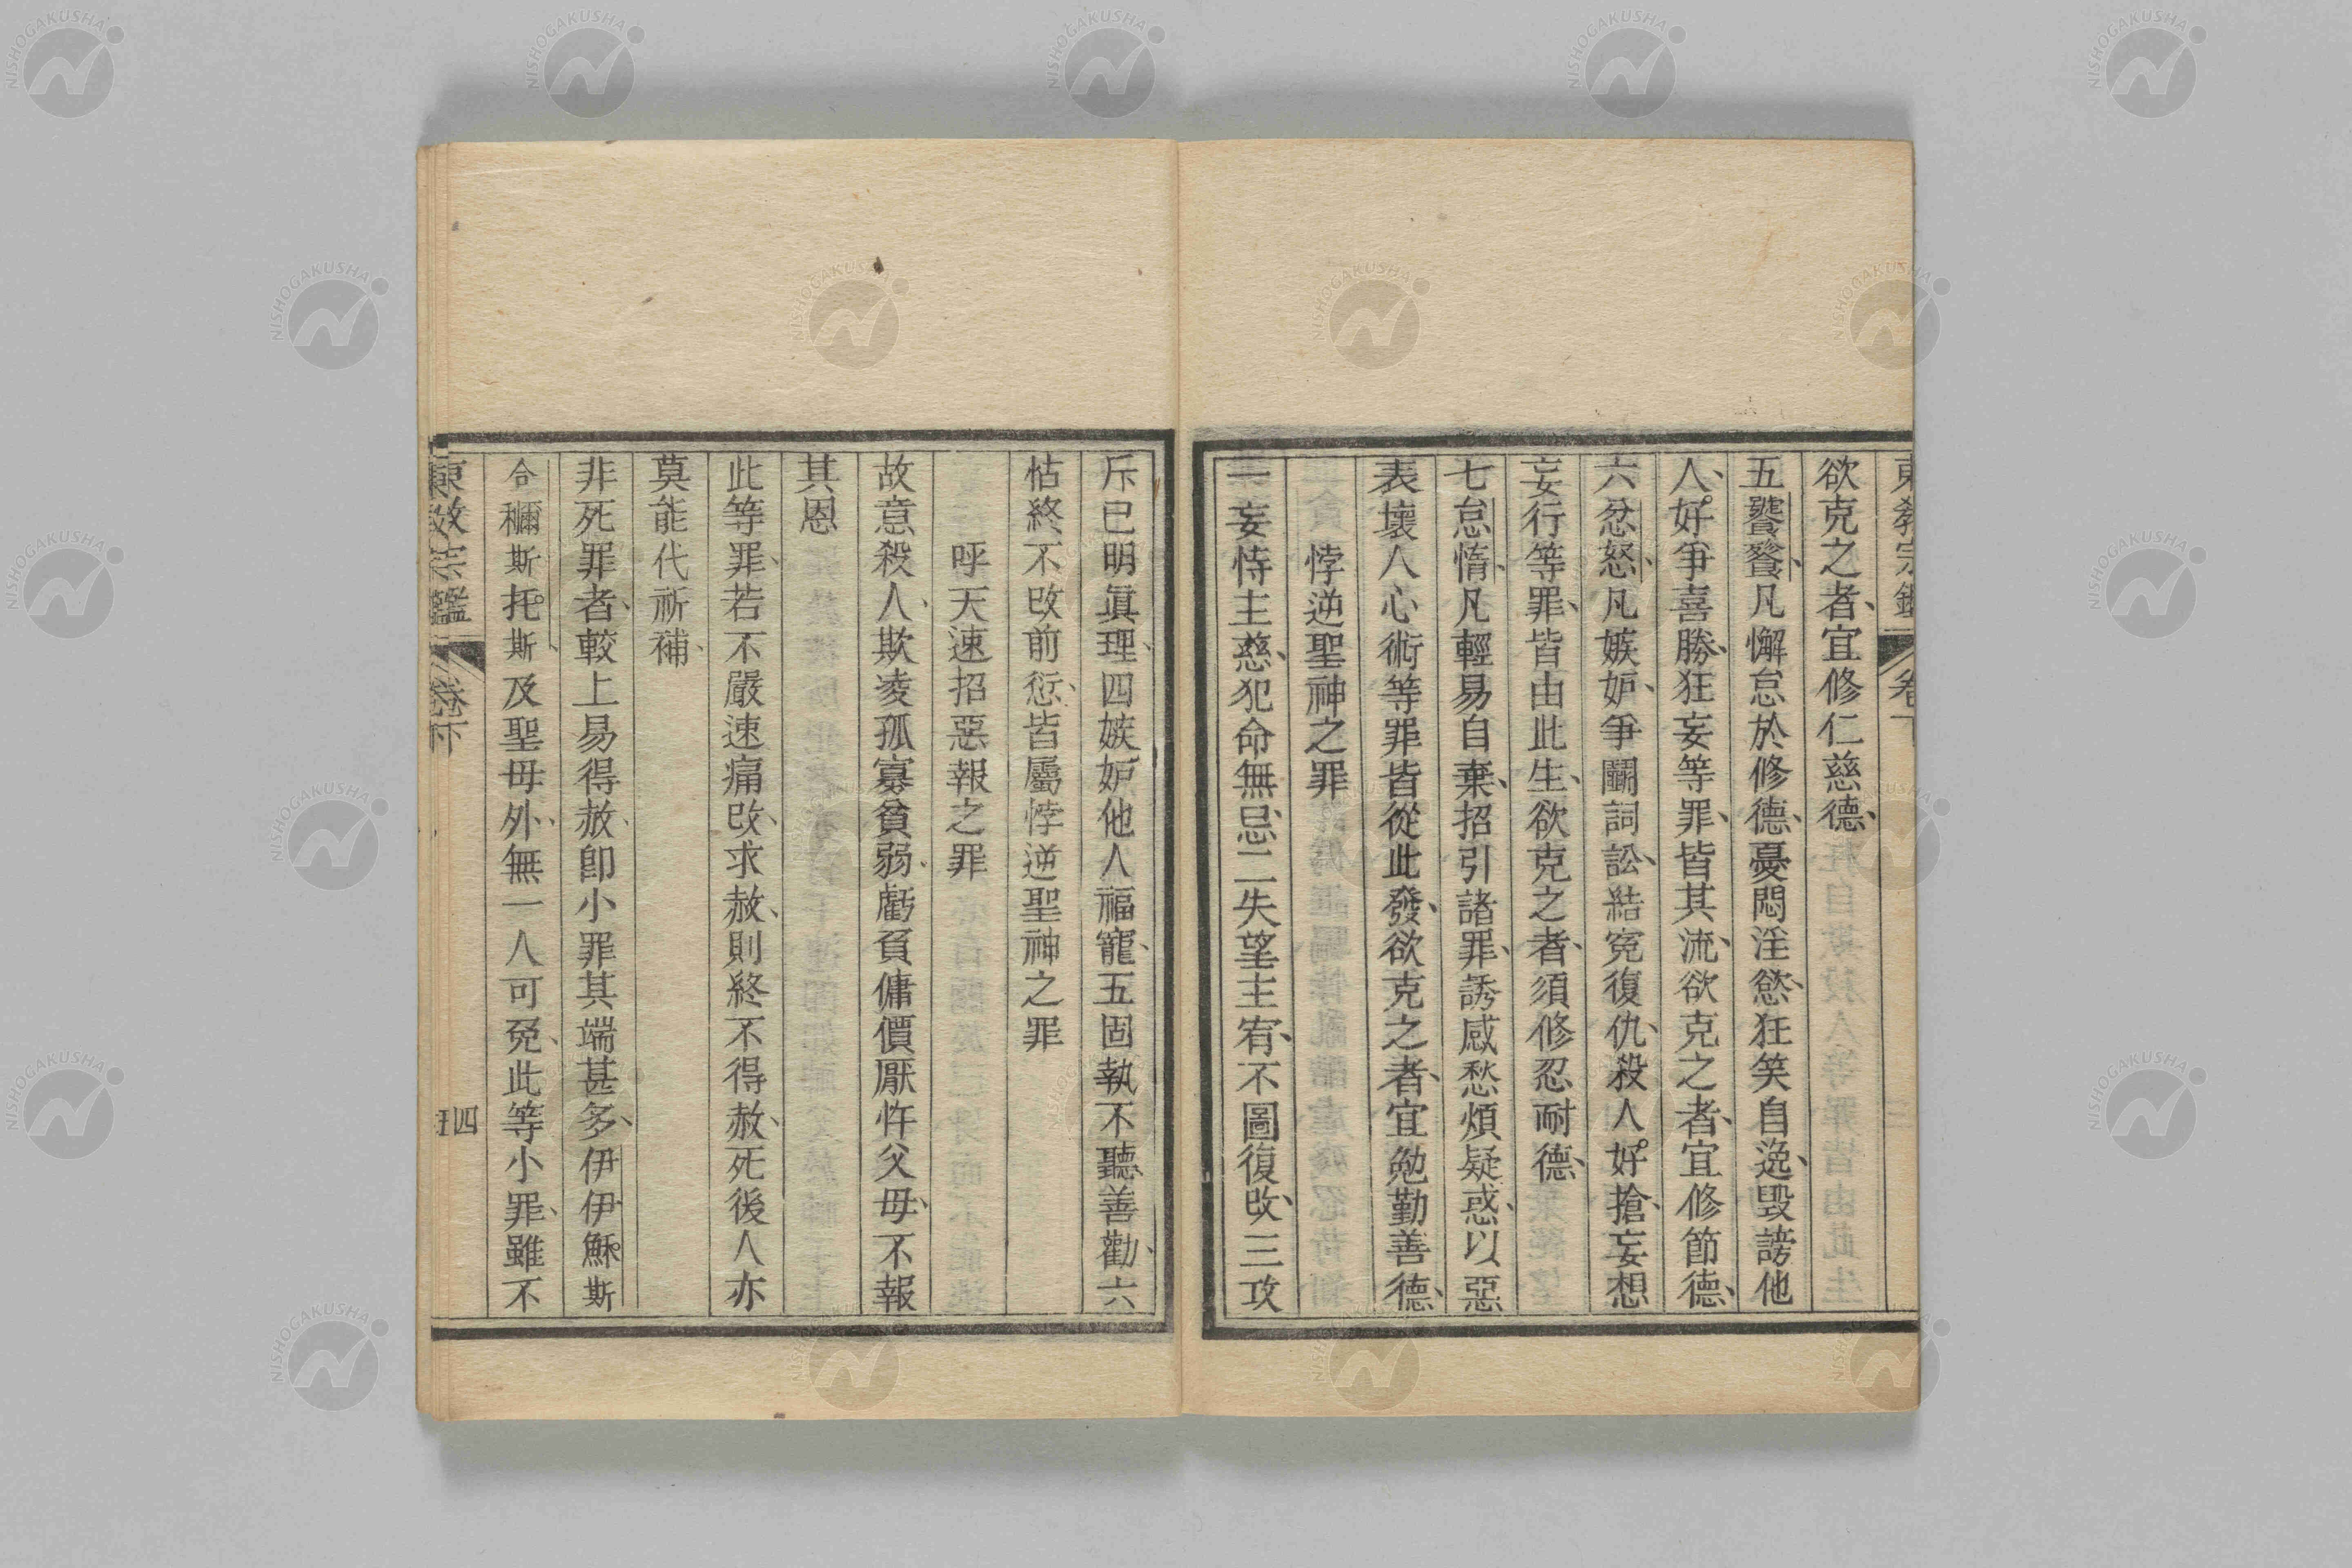 東敎宗鑑 卷下
欲克之者、宜修仁慈德、
五饕餮、凡懈怠於修德、憂悶淫慾、狂笑自逸、毀謗他
人、好爭喜勝、狂妄等罪、皆其流、欲克之者、宜修節德、
六忿怒、凡嫉妒、爭鬭詞訟、結寃復仇、殺人好搶、妄想
妄行等罪、皆由此生、欲克之者、須修忍耐德、
七怠惰、凡輕易自棄、招引諸罪、誘感愁煩疑惑、以惡
表壞人心術等罪皆從此發、欲克之者、宜勉勤善德、
悖逆聖神之罪
一妄恃主慈、犯命無忌、二失望主宥、不圖復改、三攻
斥已明眞理、四嫉妒他人福寵、五固執不聽善勸、六
怙終不改前愆、皆屬悖逆聖神之罪
呼天速招惡報之罪
故意殺人、欺凌孤寡貧弱、虧負傭價、厭忤父母、不報
其恩
此等罪、若不嚴速痛改、求赦、則終不得赦、死後人亦
莫能代祈補、
非死罪者、較上易得赦、卽小罪其端甚多、伊伊穌斯
合穪斯托斯及聖母外、無一人可免、此等小罪、雖不
東敎宗鑑 卷下 四
NISHOGAKUSHA